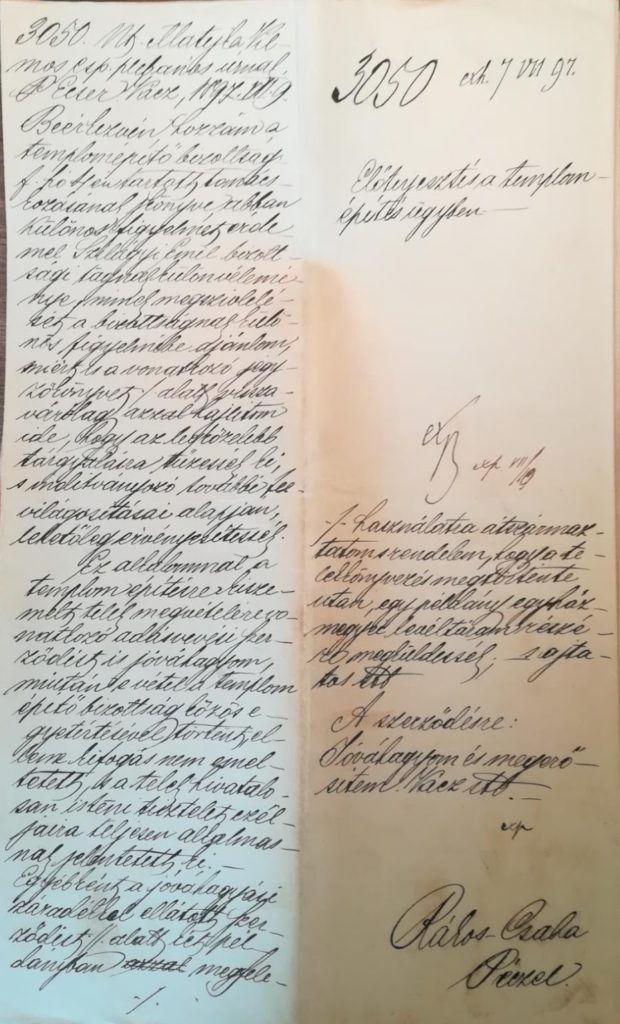 3050. Nt. Matejka Vil-
mos esp. plébános úrnak
P. Ecser Vácz, 1897. VII. 9.
Beérkezvén hozzám a
templomépítő bizottság
f. hó 5én tartott tanács-
kozásának jkönyve abban
különös figyelmet érde
mel Szilágyi Emil bizott-
sági tagnak különvélemé
nye, minek megszívlelé-
sét a bizottságnak külö-
nös figyelmébe ajánlom,
miért is a vonatkozó jegy-
zőkönyvet ·/· alatt vissza-
várólag azzal hajlítom
ide, hogy az legközelebb
tárgyalásra tűzessék ki,
s indítványozó további fel
világosításai alapján,
lehetőleg érvényesítessék.
Ez alkalommal, a
templom építésre kisze-
melt telek megvételére vo
natkozó adásvevési szer-
ződést is jóváhagyom,
miután e vétel a templom
építő bizottság közös e-
gyetértésével történt, el-
lene kifogás nem emel-
tetett, és a telek hivatalo-
san isteni tisztelet czél-
jaira teljesen alkalmas-
nak jelentetett ki. —
Egyébként a jóváhagyási
záradékkal ellátott szer-
ződést ·/· alatt két pél-
dányban azzal megküle-
·/·
3050 exh. 7 VII 97.
Előterjesztés a templom-
építés ügyben —
exp VII/9
·/· használatra átszármaz-
tatom s rendelem, hogy a te-
lekkönyvezés megtörténte
után, egy példány egyház-
megyei levéltáram részé-
re megküldessék; s ajta-
tos stb
A szerződésre:
Jóváhagyom és megerő-
sítem. Vácz stb. —
exp
Rákos-Csaba
Péczel.